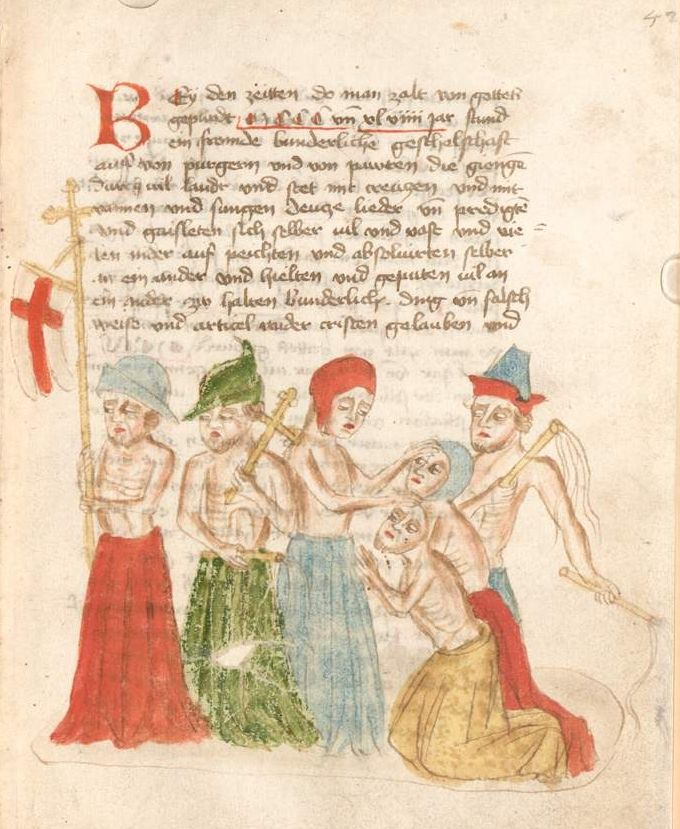 42
BEy den zeitten do man zalt von gottes
gepurdt M CCC vnd xl viiii jar stund
ein fremde bunderliche geselschaft
auf von purgern vnd von pawren die gienge
durch vil landt vnd stet mit creuczen vnd mit
vannen vnd sungen Jeucze lieder vn predigte
vnd gaisleten sich selber vil vnd vast vnd vie
len nider auf peichten vnd absolvirten selber
an ein ander vnd hielten vnd geputen vil an
ein ander zw halten bunderlich ding von falsch
weise vnd articel wider cristen gelauben vnd